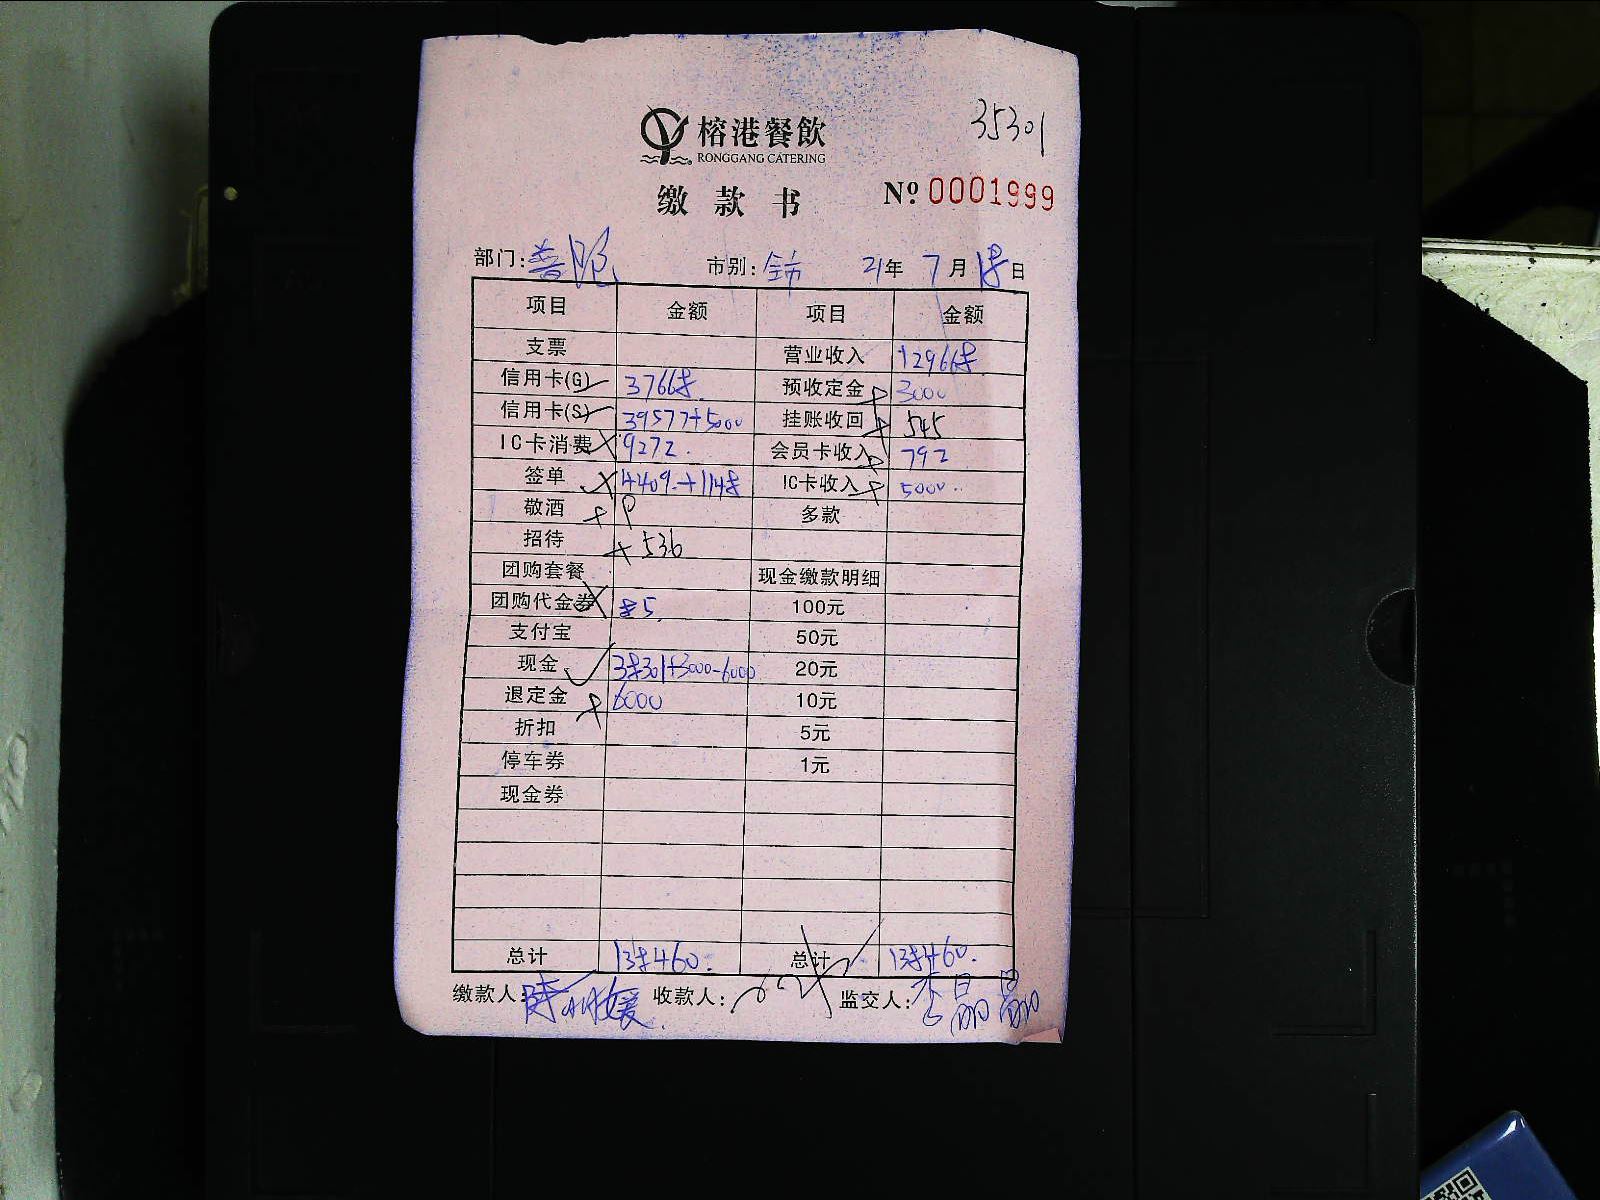 榕港餐飲
RONGGANG CATERING
35301
缴款书
№ 0001999
部门: 市别: 全市 21年 7月 18日
项目 金额 项目 金额
支票 营业收入 129668
信用卡(G) 37668. 预收定金 3000
信用卡(S) 39577+5000 挂账收回 545
IC卡消费 9272. 会员卡收入 792
签单 4409.+1148 IC卡收入 5000..
敬酒 多款
招待 536
团购套餐 现金缴款明细
团购代金券 85. 100元
支付宝 50元
现金 38301+3000-6000 20元
退定金 6000 10元
折扣 5元
停车券 1元
现金券
总计 138460. 总计 138460.
缴款人: 收款人: 监交人: 李晶晶